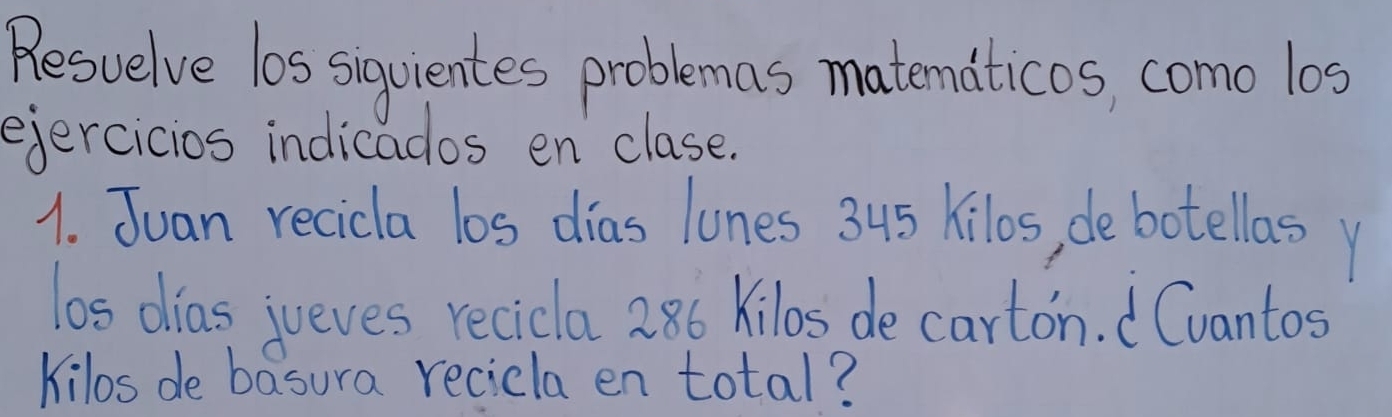 Resuelve los siguientes problemas matemáticos, como los
ejercicios indicados en clase.
1. Juan recicla los días lunes 345 Kilos, de botellas y
los días jueves recicla 286 Kilos de cartón. ¿Cuantos
Kilos de basura recicla en total?